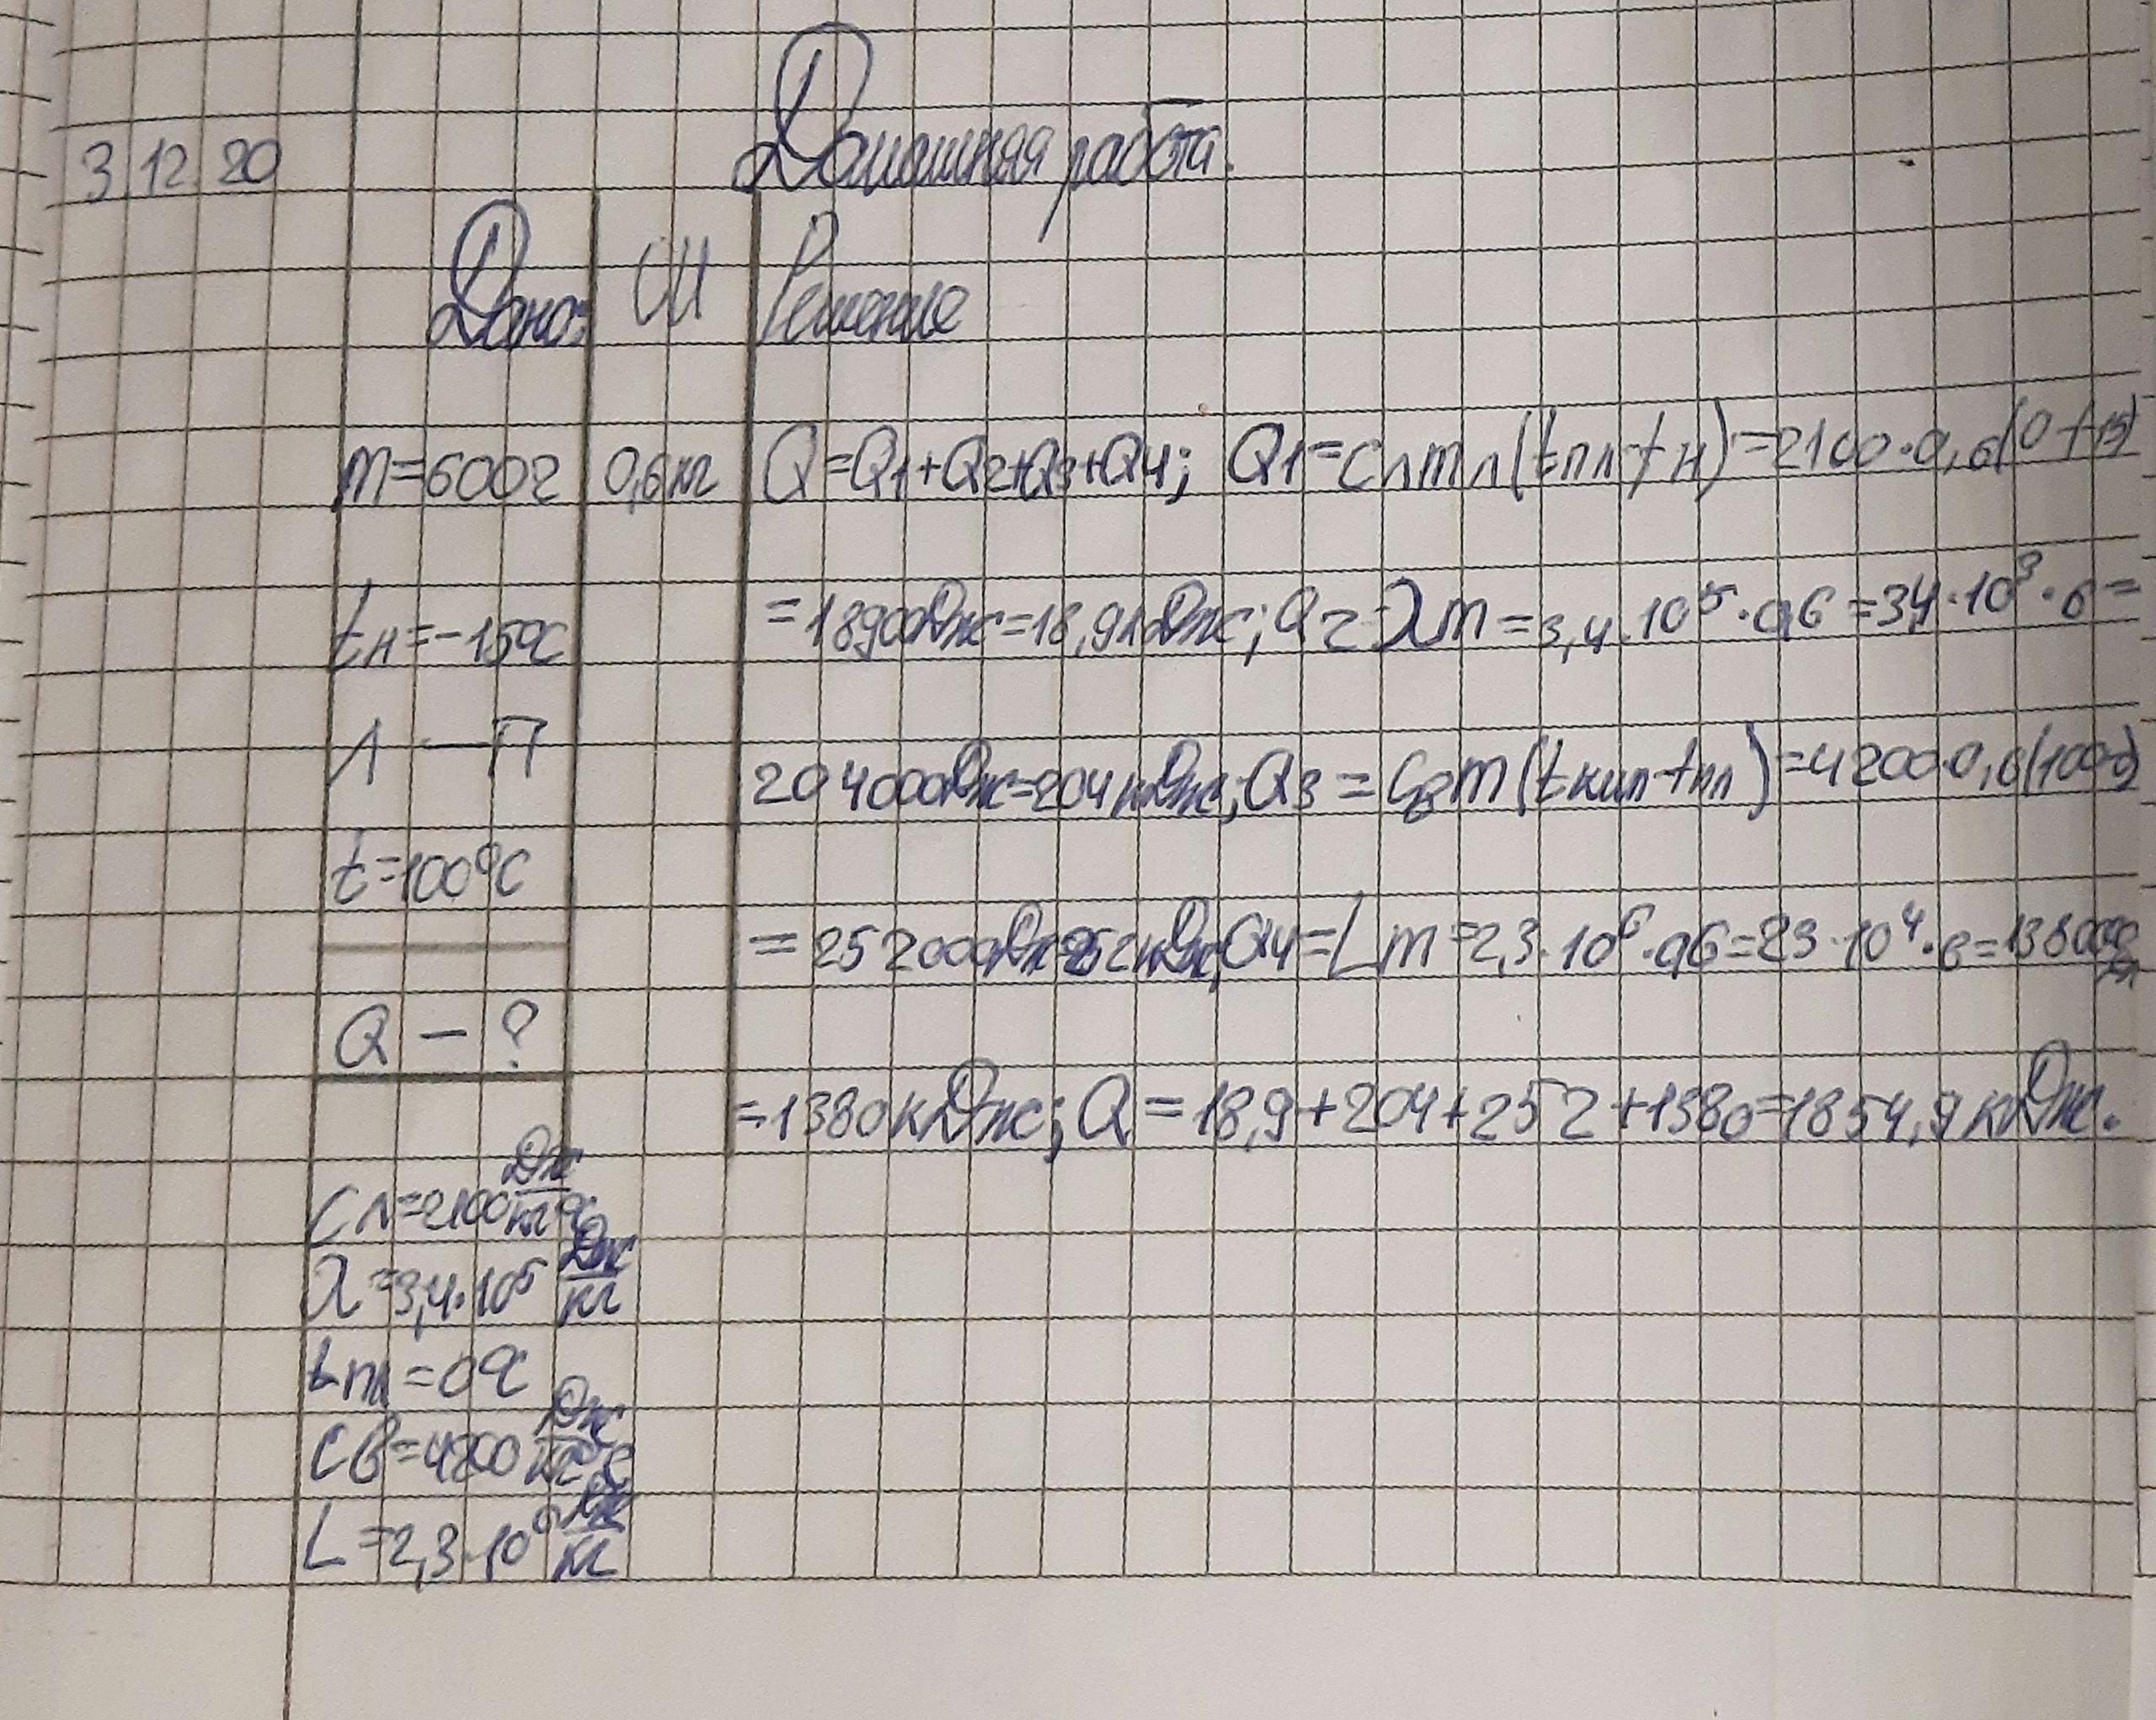 3.12.20 Домашняя работа.
Дано: СИ Решение
m=600г 0,6кг Q=Q1+Q2+Q3+Q4; Q1=cлmл(tпл-tн)=2100·0,6(0+15)
=18900Дж=18,9кДж; Q2=λm=3,4·10⁵·0,6=34·10³·6=
tн=-15°C
Л — П 204000Дж=204кДж; Q3=cвm(tкип-tпл)=4200·0,6(100-0)
t=100°C
=252000Дж=252кДж; Q4=Lm=2,3·10⁶·0,6=23·10⁴·6=1380000Дж
Q — ?
=1380кДж; Q=18,9+204+252+1380=1854,9кДж.
cл=2100 Дж/кг°C
λ=3,4·10⁵ Дж/кг
tпл=0°C
cв=4200 Дж/кг°C
L=2,3·10⁶ Дж/кг